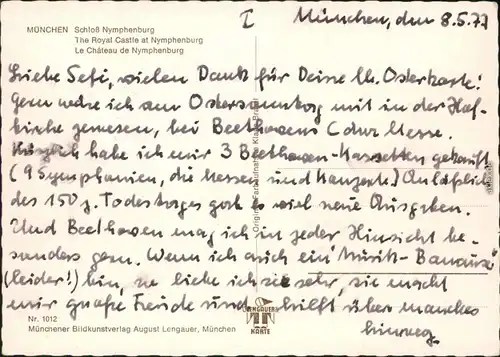 I
München, den 8.5.77
MÜNCHEN Schloß Nymphenburg
The Royal Castle at Nymphenburg
Le Château de Nymphenburg
Liebe Sefi, vielen Dank für Deine lb. Osterkarte!
Gern wäre ich am Ostersonntag mit in der Hof-
kirche gewesen, bei Beethovens C dur Messe.
Kürzlich habe ich mir 3 Beethoven-Kassetten gekauft
(9 Symphonien, die Messen und Konzerte) Anläßlich
des 150 j. Todestages gab es viel neue Ausgaben.
Und Beethoven mag ich in jeder Hinsicht be-
sonders gern. Wenn ich auch ein Musik-Banause
(leider!) bin, so liebe ich sie sehr, sie macht
mir große Freude und hilft über manches
hinweg.
Nr. 1012
Münchener Bildkunstverlag August Lengauer, München
LENGAUER
KARTE